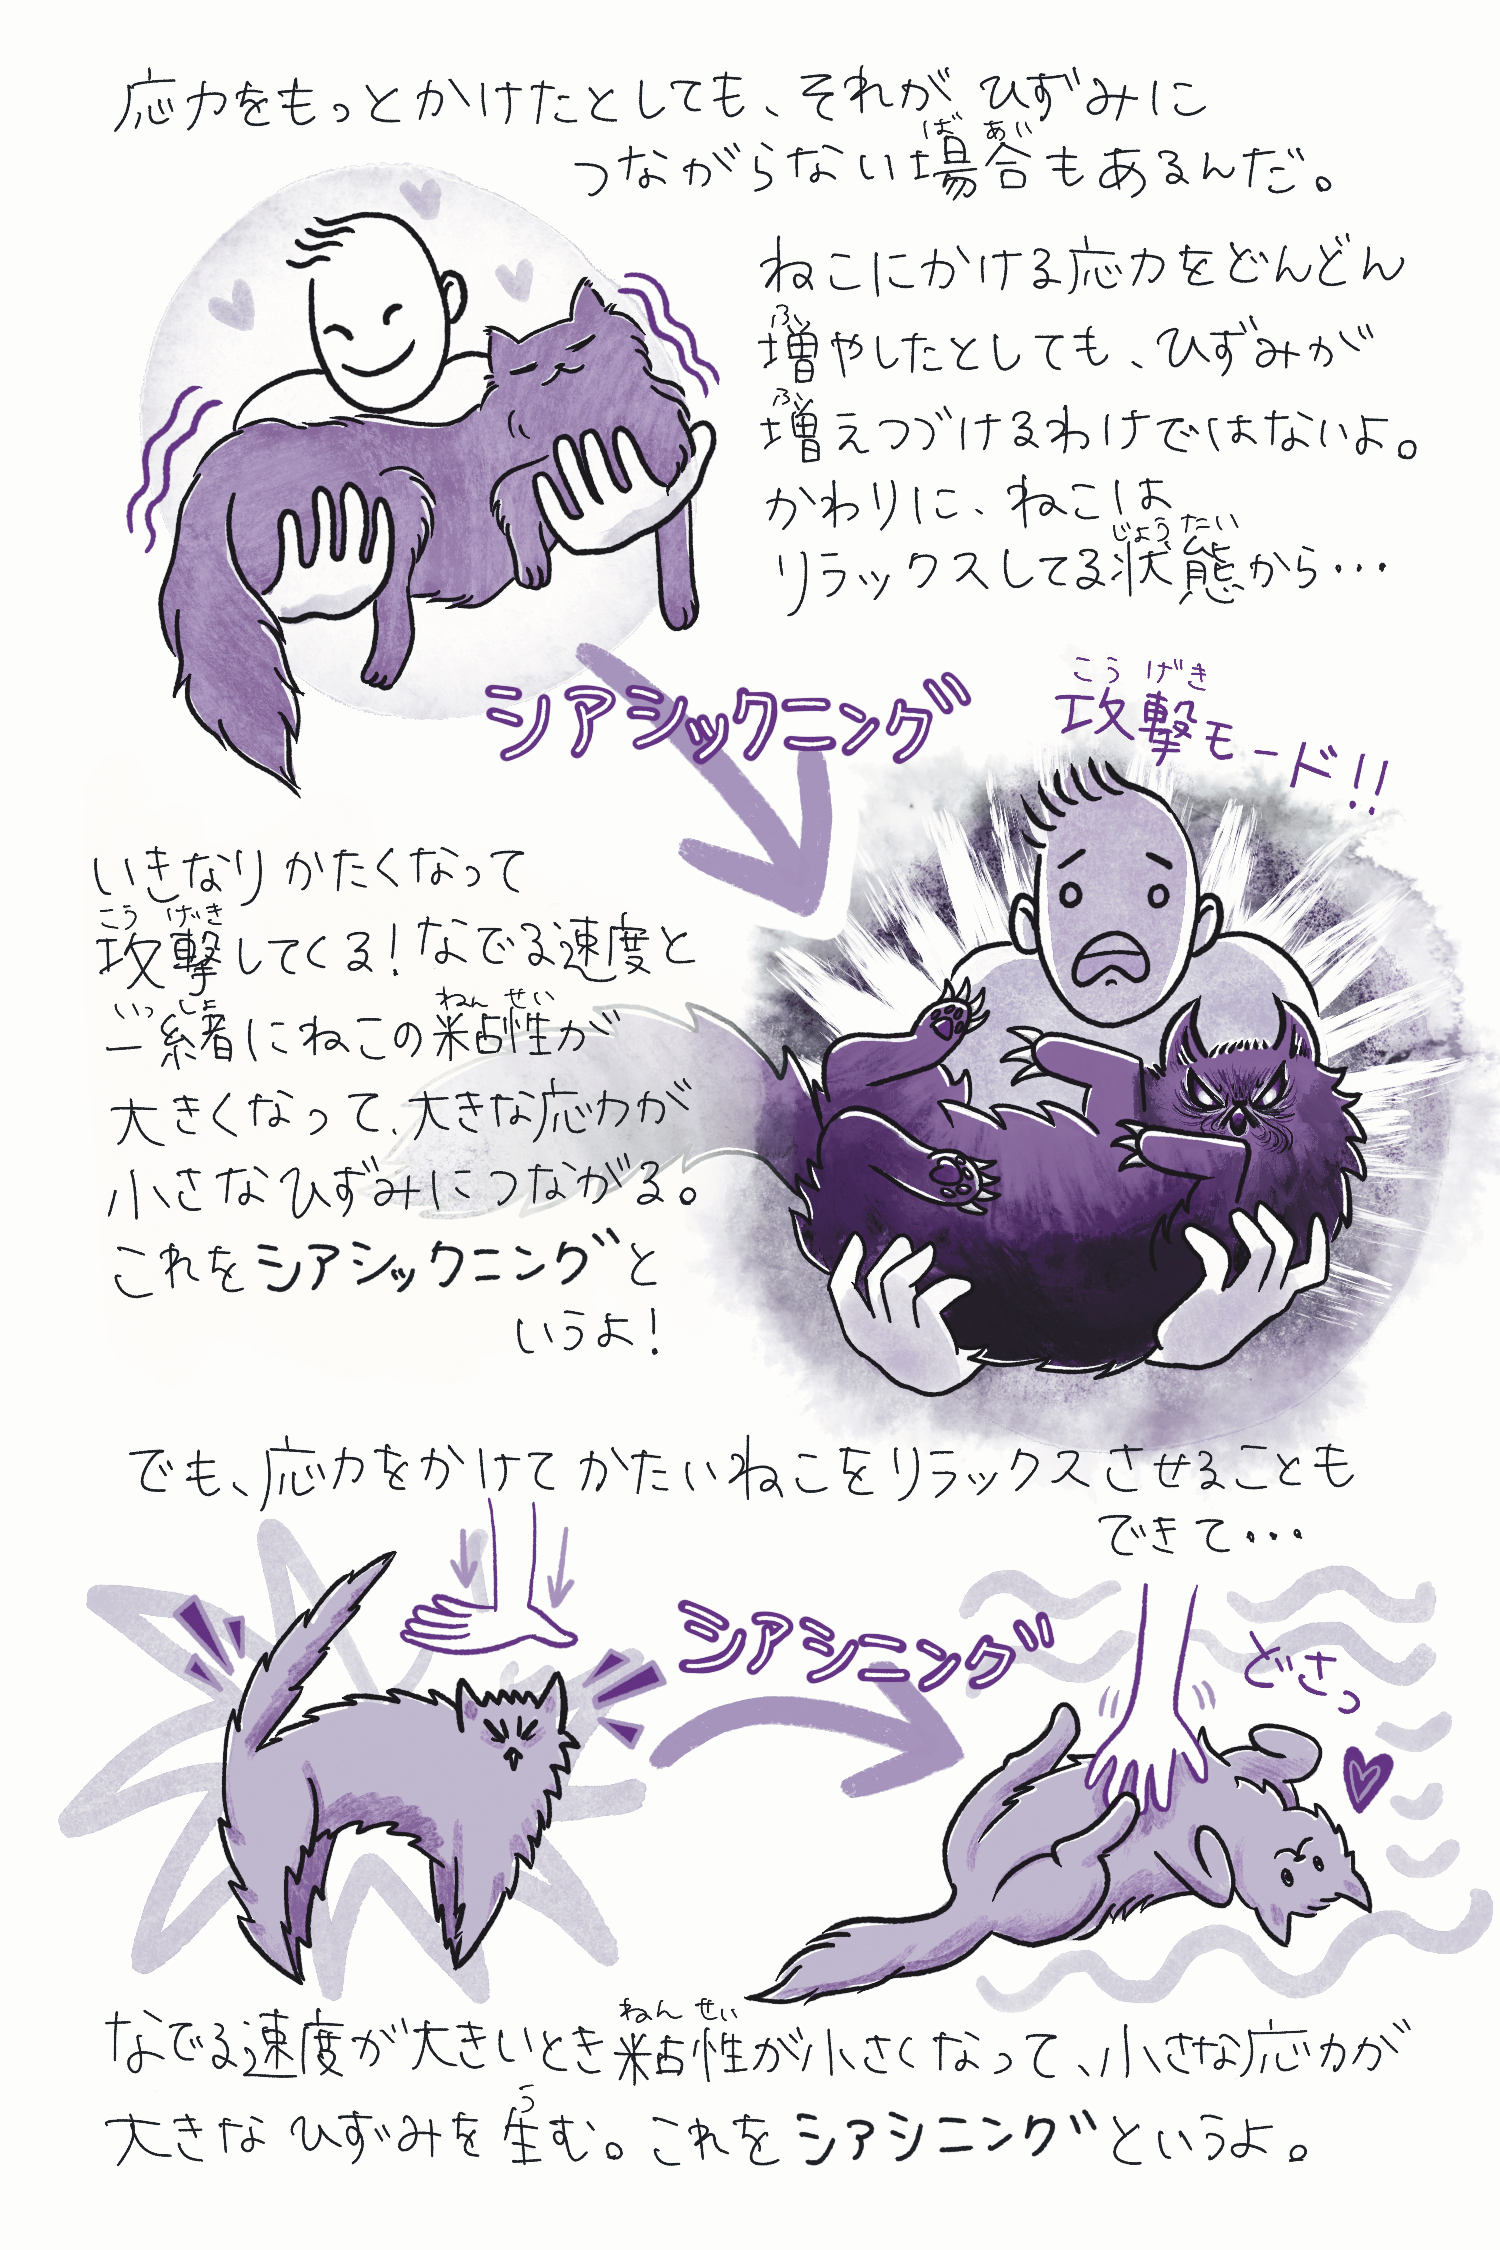 応力をもっとかけたとしても、それが ひずみに
つながらない場合もあるんだ。
ばあい
ねこにかける応力をどんどん
増やしたとしても、ひずみが
ふ
増えつづけるわけではないよ。
ふ
かわりに、ねこは
リラックスしてる状態から…
じょうたい
シアシックニング
攻撃モード!!
こうげき
いきなりかたくなって
攻撃してくる!なでる速度と
こうげき
一緒にねこの粘性が
いっしょ ねんせい
大きくなって、大きな応力が
小さなひずみにつながる。
これをシアシックニングと
いうよ!
でも、応力をかけてかたいねこをリラックスさせることも
できて…
シアシニング
どさっ
なでる速度が大きいとき粘性が小さくなって、小さな応力が
ねんせい
大きな ひずみを生む。これをシアシニングというよ。
う